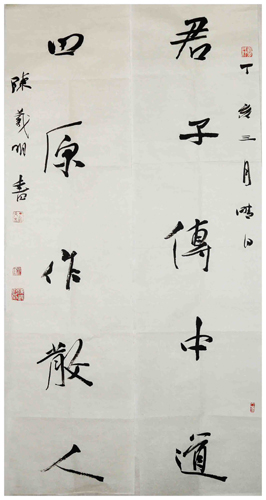 丁亥三月晴日
君子傳中道
原作散人
陳義明書